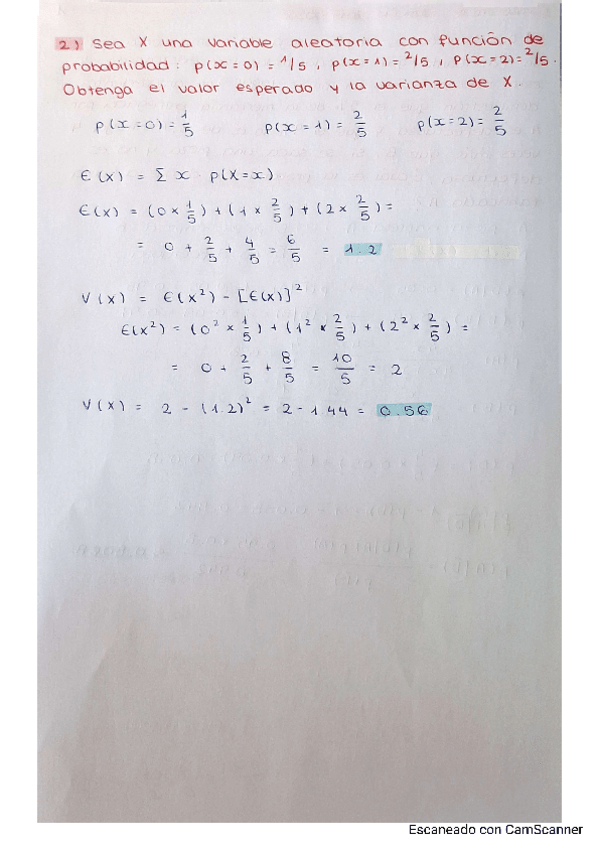 2) Sea X una variable aleatoria con función de
probabilidad: p(x=0) = 1/5, p(x=1) = 2/5, p(x=2)= 2/5.
Obtenga el valor esperado y la varianza de X.
p(x=0) = 1/5 p(x=1) = 2/5 p(x=2) = 2/5
E(x) = Σ x · p(X=x)
E(x) = (0 x 1/5) + (1 x 2/5) + (2 x 2/5) =
= 0 + 2/5 + 4/5 = 6/5 = 1.2
V(x) = E(x²) - [E(x)]²
E(x²) = (0² x 1/5) + (1² x 2/5) + (2² x 2/5) =
= 0 + 2/5 + 8/5 = 10/5 = 2
V(x) = 2 - (1.2)² = 2 - 1.44 = 0.56
Escaneado con CamScanner